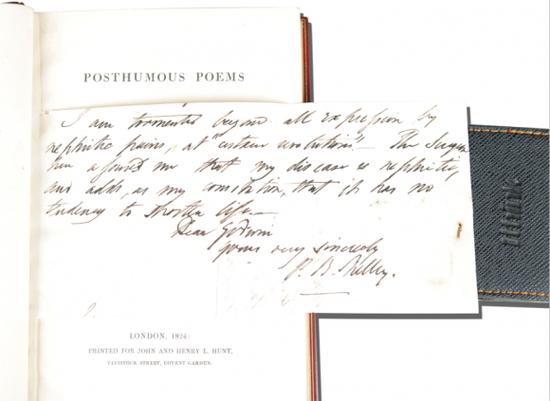 POSTHUMOUS POEMS
I am tormented beyond all expression by
nephritic pains, at "certain revolutions". The Surgeon
here assured me that my disease is nephritic,
and adds, as my consolation, that it has no
tendency to shorten life.—
Dear Godwin
yours very sincerely
P. B. Shelley.
LONDON, 1824:
PRINTED FOR JOHN AND HENRY L. HUNT,
TAVISTOCK STREET, COVENT GARDEN.